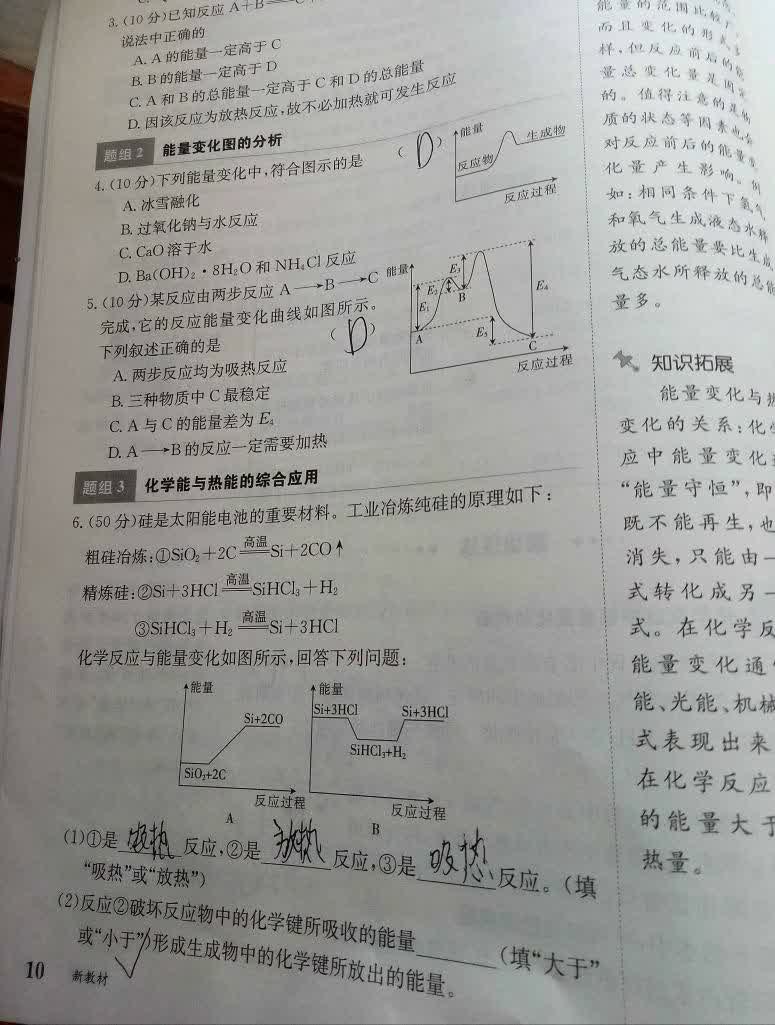 3.(10分)已知反应 A+B
说法中正确的
A. A 的能量一定高于 C
B. B 的能量一定高于 D
C. A 和 B 的总能量一定高于 C 和 D 的总能量
D. 因该反应为放热反应,故不必加热就可发生反应
题组2 能量变化图的分析
4.(10分)下列能量变化中,符合图示的是
( D )
A. 冰雪融化
B. 过氧化钠与水反应
C. CaO 溶于水
D. Ba(OH)₂·8H₂O 和 NH₄Cl 反应
能量
生成物
反应物
反应过程
5.(10分)某反应由两步反应 A⟶B⟶C
完成,它的反应能量变化曲线如图所示。
下列叙述正确的是
( D )
A. 两步反应均为吸热反应
B. 三种物质中 C 最稳定
C. A 与 C 的能量差为 E₄
D. A⟶B 的反应一定需要加热
能量
E₁
E₂
E₃
B
E₄
A
E₅
C
反应过程
题组3 化学能与热能的综合应用
6.(50分)硅是太阳能电池的重要材料。工业冶炼纯硅的原理如下:
粗硅冶炼:①SiO₂+2C 高温 Si+2CO↑
精炼硅:②Si+3HCl 高温 SiHCl₃+H₂
③SiHCl₃+H₂ 高温 Si+3HCl
化学反应与能量变化如图所示,回答下列问题:
能量
Si+2CO
SiO₂+2C
反应过程
A
能量
Si+3HCl
Si+3HCl
SiHCl₃+H₂
反应过程
B
(1)①是 吸热 反应,②是 放热 反应,③是 吸热 反应。(填
“吸热”或“放热”)
(2)反应②破坏反应物中的化学键所吸收的能量______(填“大于”
或“小于”)形成生成物中的化学键所放出的能量。
10 新教材
能量的范围比较
而且变化的形式多
样,但反应前后的能
量总变化量是固定
的。值得注意的是物
质的状态等因素也会
对反应前后的能量变
化量产生影响。例
如:相同条件下氢气
和氧气生成液态水释
放的总能量要比生成
气态水所释放的总能
量多。
知识拓展
能量变化与热
变化的关系:化学
应中能量变化
“能量守恒”,即
既不能再生,也
消失,只能由一
式转化成另一
式。在化学反
能量变化通
能、光能、机械
式表现出来
在化学反应
的能量大于
热量。